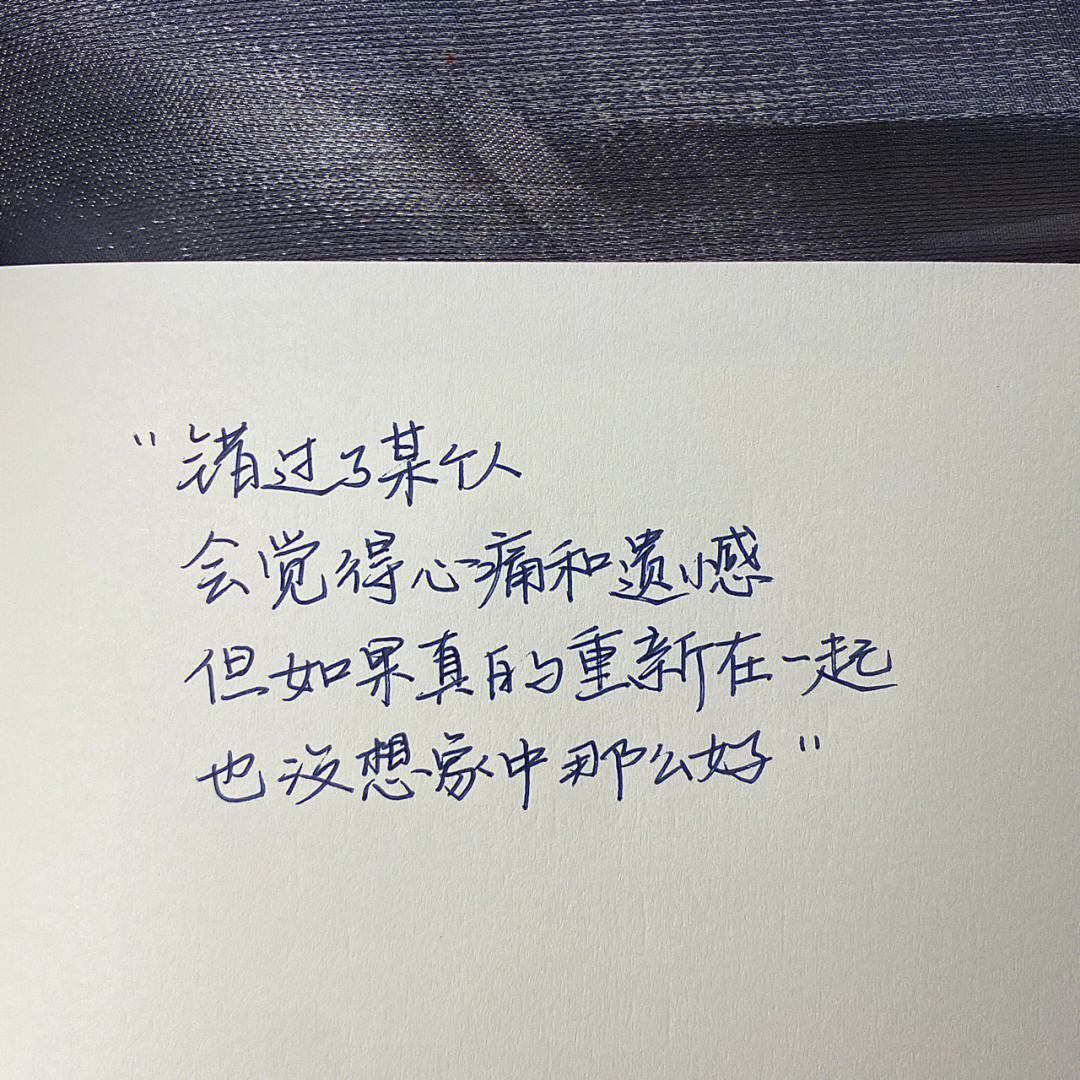 "错过了某个人
会觉得心痛和遗憾
但如果真的重新在一起
也没想象中那么好"